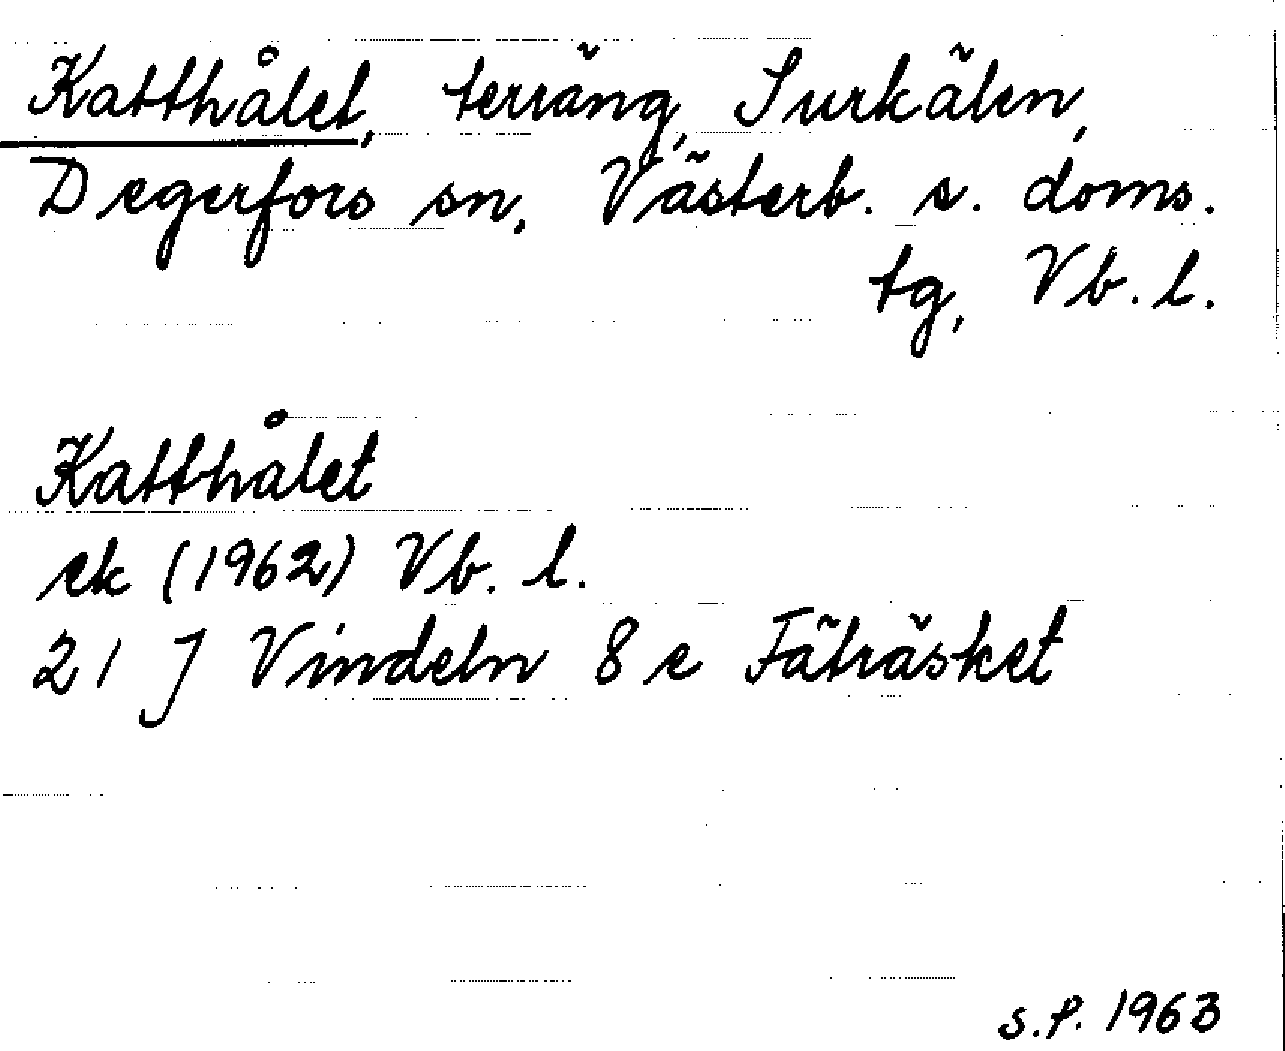 Katthålet, terräng, Surkälen,
Degerfors sn, Västerb. s. doms.
tg, Vb. l.
Katthålet
ek (1962) Vb. l.
21 J Vindeln 8 e Fäträsket
S.P. 1963